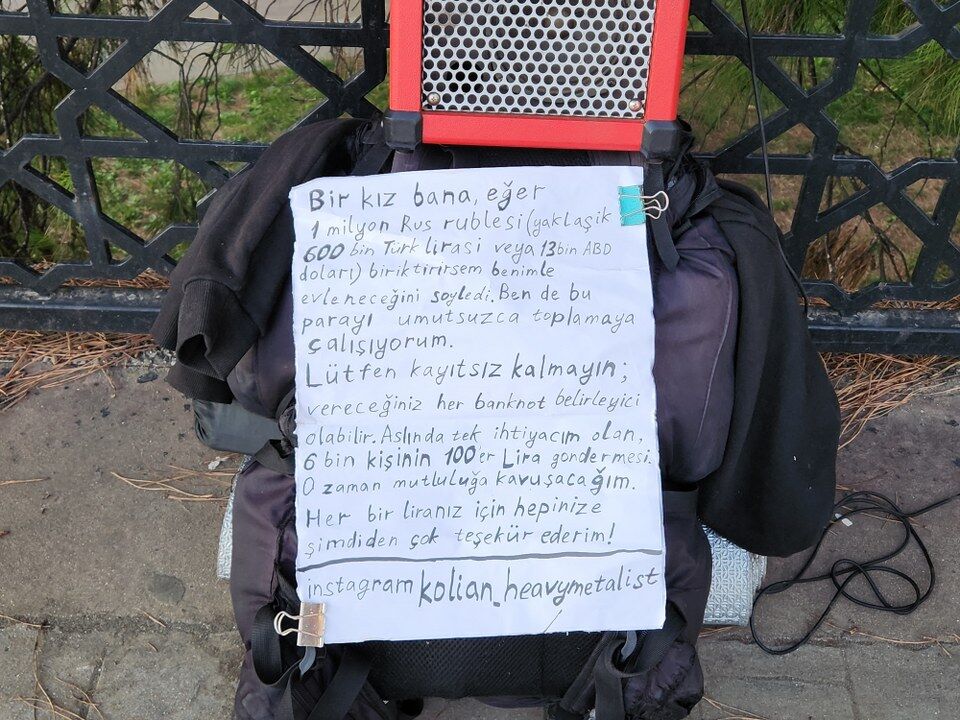 Bir kız bana, eğer
1 milyon Rus rublesi (yaklaşik
600 bin Türk lirasi veya 13 bin ABD
doları) biriktirirsem benimle
evleneceğini söyledi. Ben de bu
parayı umutsuzca toplamaya
çalışıyorum.
Lütfen kayıtsız kalmayın;
vereceğiniz her banknot belirleyici
olabilir. Aslında tek ihtiyacım olan,
6 bin kişinin 100'er Lira göndermesi.
O zaman mutluluğa kavuşacağım.
Her bir liranız için hepinize
şimdiden çok teşekür ederim!
instagram kolian_heavymetalist